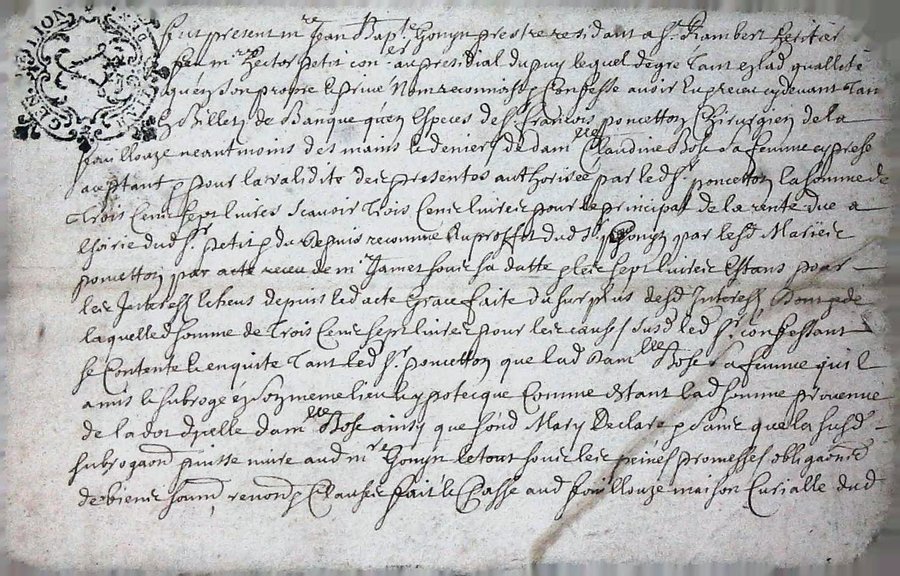 fut present mre Jean Bapte Gonyn prestre residant a St Rambert heritier
de feu mre hector petit coner au presidial du puy lequel de gre tant ez lad quallité
qu'en son propre & privé nom reconnoist & confesse avoir eu & receu cy devant tant
en Billets de Banque qu'en Especes de Sr francois poncetton Chirurgien de la
fouillouze neantmoins des mains & deniers de damlle Claudine Bose sa femme cy prese
acceptant & pour la validite des presentes authorisée par led Sr poncetton la somme de
Trois Cens sept livres scavoir Trois Cens livres pour le principal de la rente due a
lhoirie dud Sr petit & du depuis reconnue au proffit dud Sr Gonyn par lesd Maries
poncetton par acte receu de me Jamet sous sa datte & les sept livres Estans pour
les Interests Echeus depuis led acte Grace faite du surplus desd Interests
laquelle somme de Trois Cens sept livres pour les causes susd led Sr confessant
se Contente & en quite Tant led Sr poncetton que lad damlle Bose sa femme qu'il
a mis & subrogé en son meme lieu & ypoteque Comme estant lad somme provenue
de la dot d'icelle damlle Bose ainsy que sond Mary Declare & sans que la susd
subrogaon puisse nuire aud mre Gonyn le tout sous les peines promesses obligaons
de biens soum renonc & Clauses fait & Passe aud fouillouze maison Curialle dud